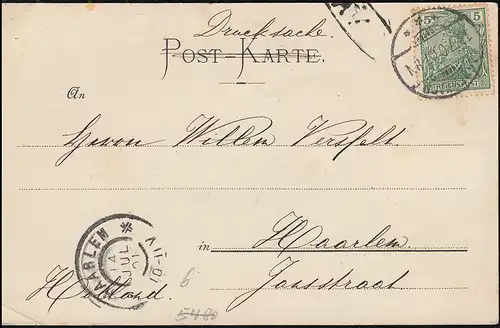 Drucksache
POST-KARTE.
5 5
An
Herrn Willem Versfelt.
HAARLEM
in Haarlem
Jansstraat
Holland.
6
5480